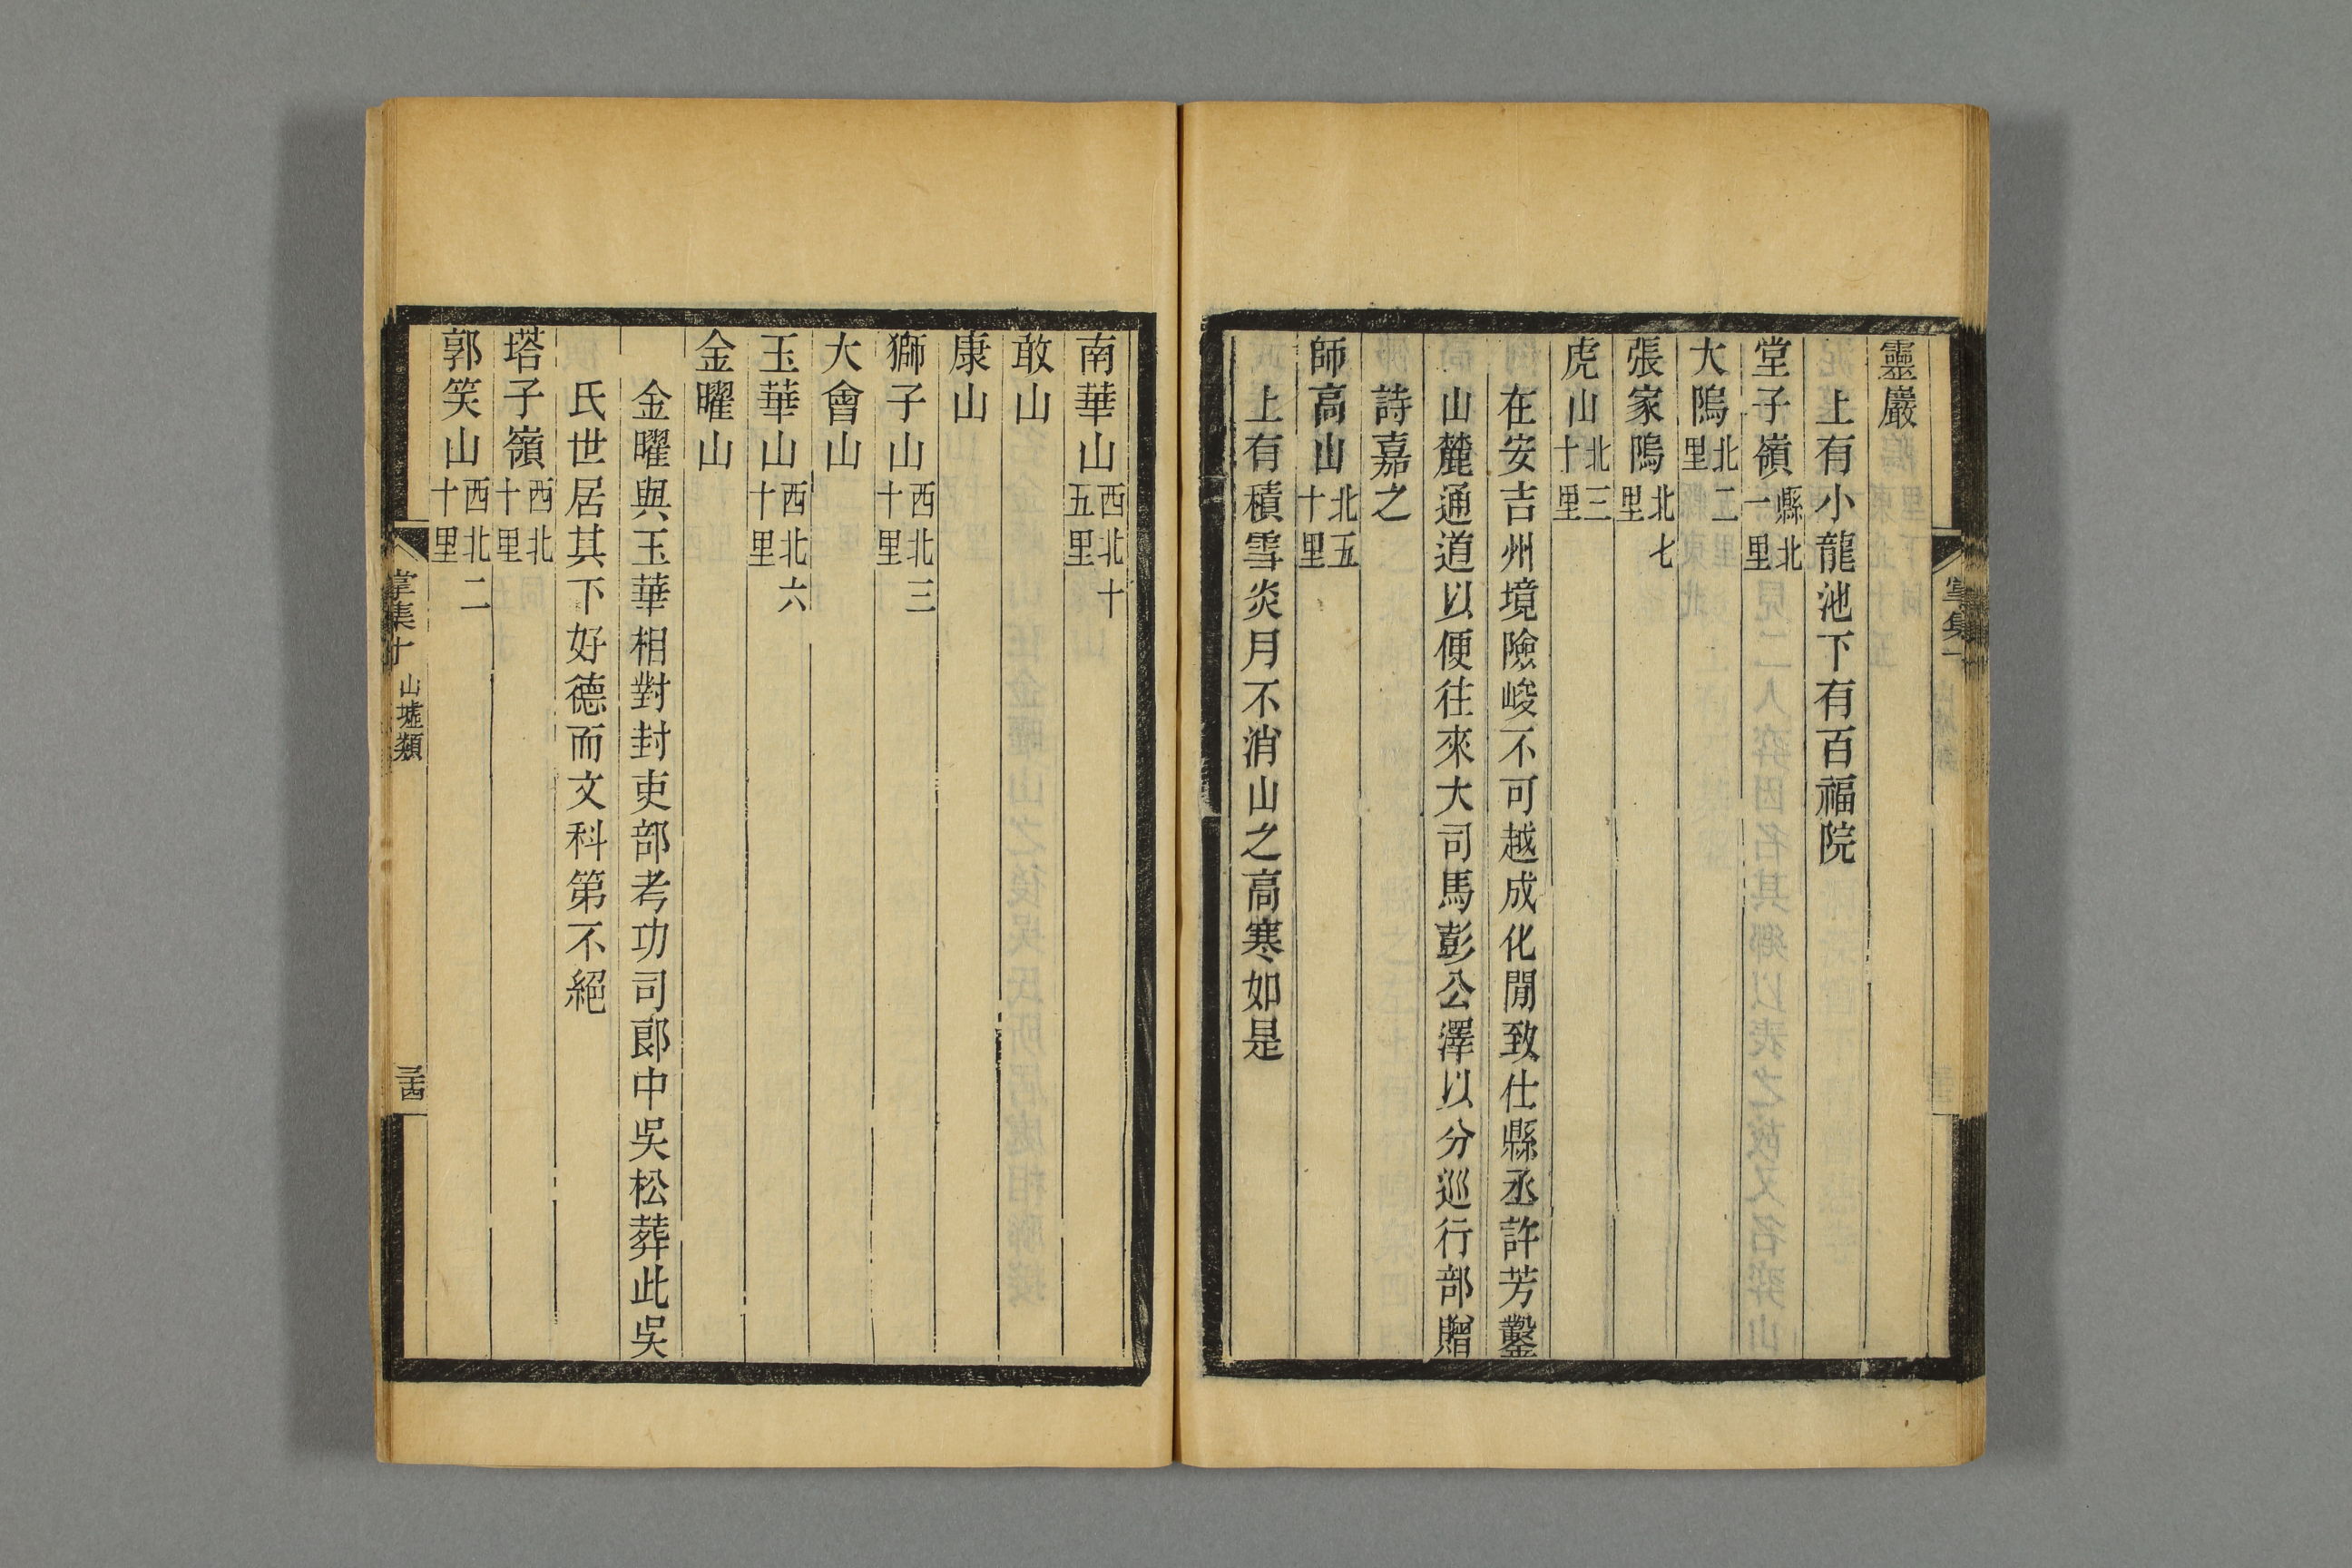 靈巖
上有小龍池下有百福院
堂子嶺縣北一里
大隖北二里
張家隖北七里
虎山北三十里
在安吉州境險峻不可越成化閒致仕縣丞許芳鑿
山麓通道以便往來大司馬彭公澤以分巡行部贈
詩嘉之
師高山北五十里
上有積雪炎月不消山之高寒如是
南華山西北十五里
敢山
康山
獅子山西北三十里
大會山
玉華山西北六十里
金曜山
金曜與玉華相對封吏部考功司郎中吳松葬此吳
氏世居其下好德而文科第不絕
塔子嶺西北十里
郭笑山西北二十里
掌集十 山墟類 三十四